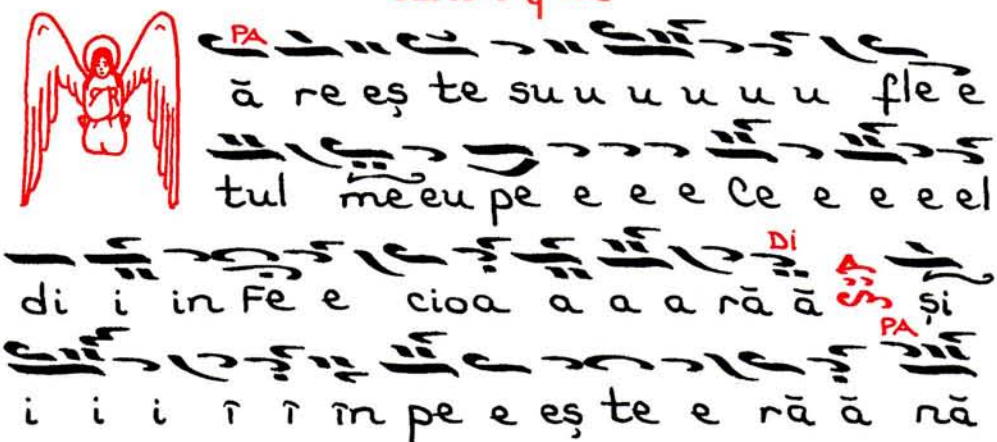 PA
ă re eș te su u u u u u fle e
tul me eu pe e e e Ce e e e el
Di
di i in Fe e cioa a a a ră ă și
PA
i i i î î în pe e eș te e ră ă nă